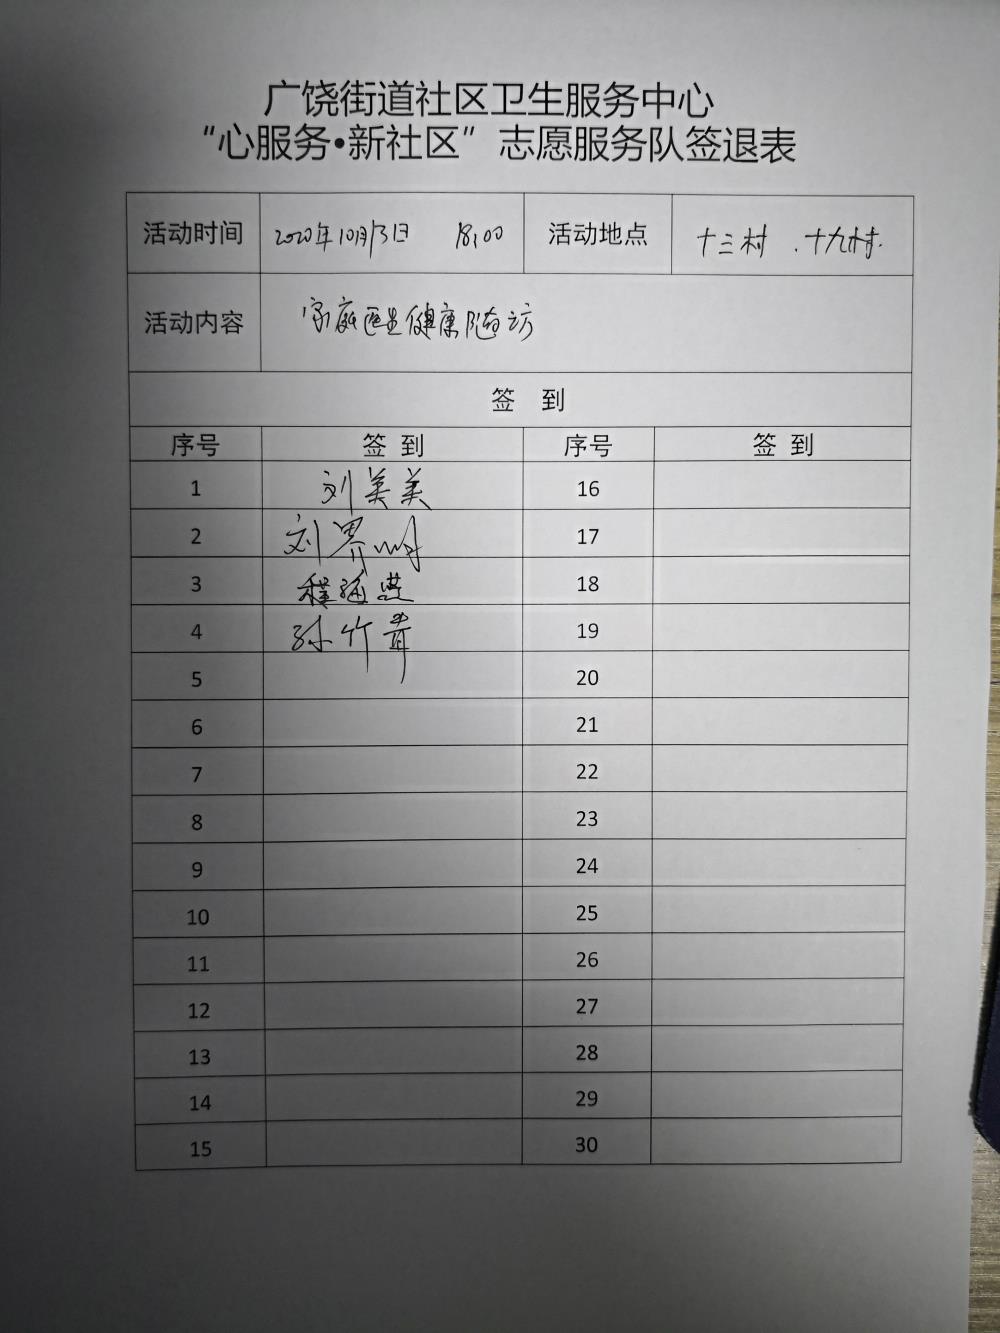 广饶街道社区卫生服务中心
“心服务•新社区”志愿服务队签退表
活动时间 2020年10月13日 18:00 活动地点 十三村.十九村.
活动内容 家庭医生健康随访
签 到
序号 签 到 序号 签 到
1 刘美美 16
2 刘界明 17
3 程海燕 18
4 孙竹青 19
5 20
6 21
7 22
8 23
9 24
10 25
11 26
12 27
13 28
14 29
15 30